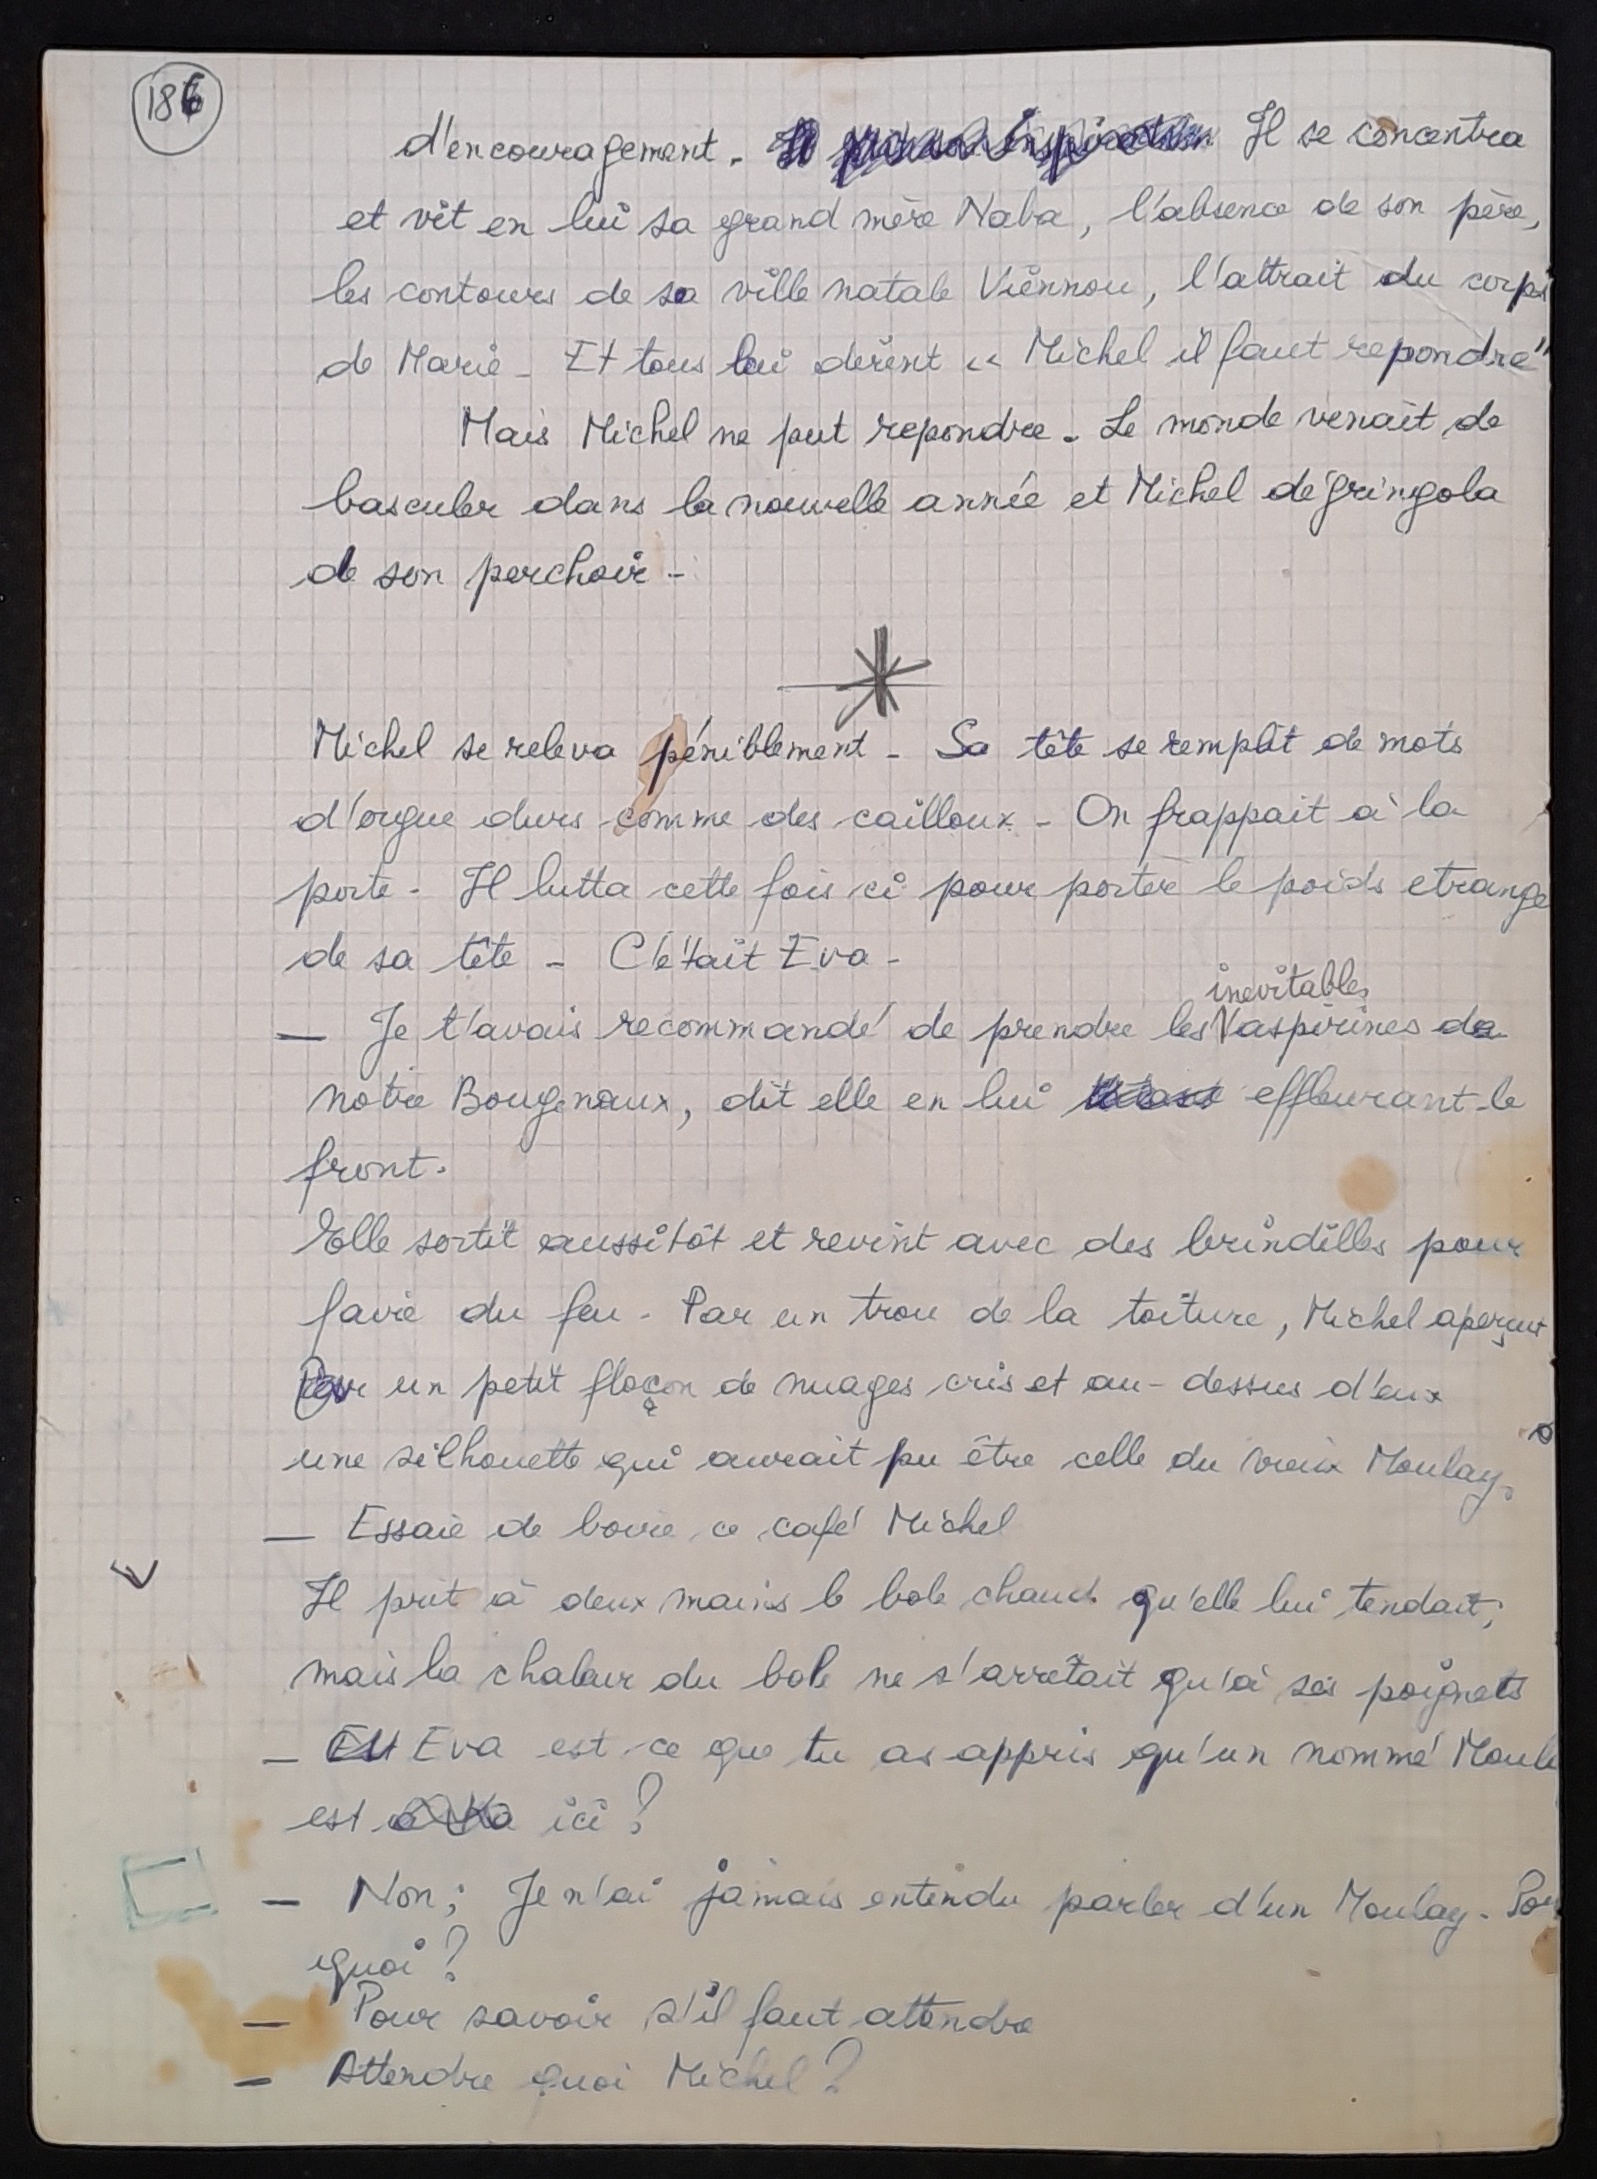 186
d'encouragement. Il se concentra
et vit en lui sa grand mère Naba, l'absence de son père,
les contours de sa ville natale Viennou, l'attrait du corps
de Marie - Et tous lui dirent « Michel il faut repondre"
Mais Michel ne put repondre. Le monde venait de
basculer dans la nouvelle année et Michel dégringola
de son perchoir -
Michel se releva péniblement - Sa tête se remplit de mots
d'orgue durs comme des cailloux - On frappait à la
porte - Il lutta cette fois ci pour porter le poids etrange
de sa tête - C'était Eva -
inevitables
— Je t'avais recommandé de prendre les aspirines de
notre Bougnaux, dit elle en lui effleurant le
front.
Elle sortit aussitôt et revint avec des brindilles pour
faire du feu - Par un trou de la toiture, Michel aperçut
un petit flocon de nuages cris et au-dessus d'eux
une silhouette qui aurait pu être celle du vieux Moulay.
— Essaie de boire ce café Michel
Il prit à deux mains le bole chaud qu'elle lui tendait;
mais la chaleur du bole ne s'arrêtait qu'à ses poignets
— Eva est-ce que tu as appris qu'un nommé Moula
est ici ?
— Non; Je n'ai jamais entendu parler d'un Moulay - Pour
quoi ?
— Pour savoir s'il faut attendre
— Attendre quoi Michel ?